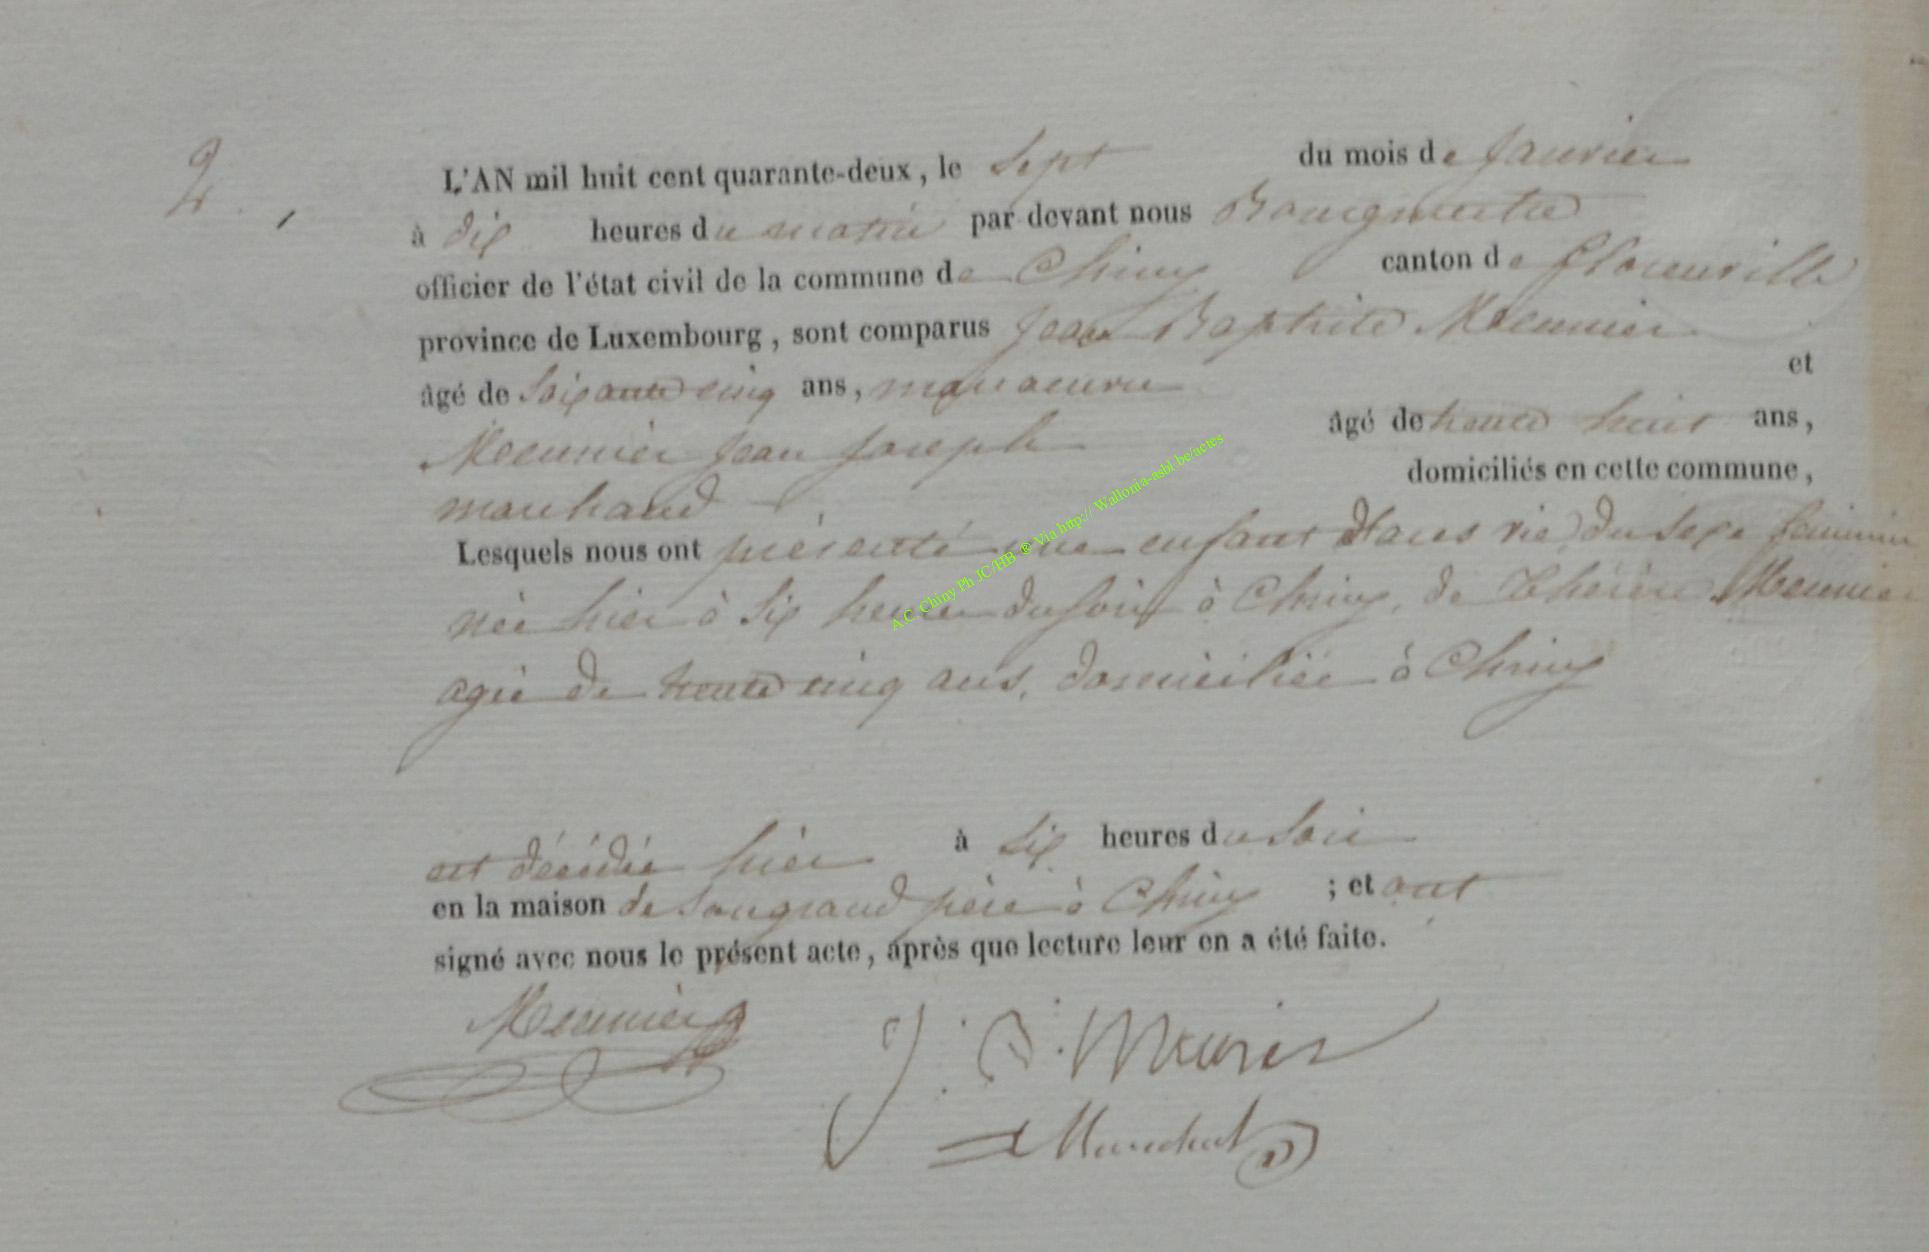 2.
L'AN mil huit cent quarante-deux, le sept du mois de janvier
à dix heures du matin par devant nous Bourgmestre
officier de l'état civil de la commune de Chiny canton de Florenville
province de Luxembourg, sont comparus Jean Baptiste Meunier
âgé de soixante cinq ans, manoeuvre et
Meunier Jean Joseph âgé de trente huit ans,
marchand domiciliés en cette commune,
Lesquels nous ont présenté une enfant sans vie, du sexe féminin
née hier à six heures du soir à Chiny, de Thérèse Meunier
agée de trente cinq ans, domiciliée à Chiny
est décédée hier à six heures du soir
en la maison de son grand père à Chiny ; et ont
signé avec nous le présent acte, après que lecture leur en a été faite.
Meunier J. B. Meunier
Marechal
A.C. Chiny Ph JC/HB ® Via http:// Wallonia-asbl.be/actes